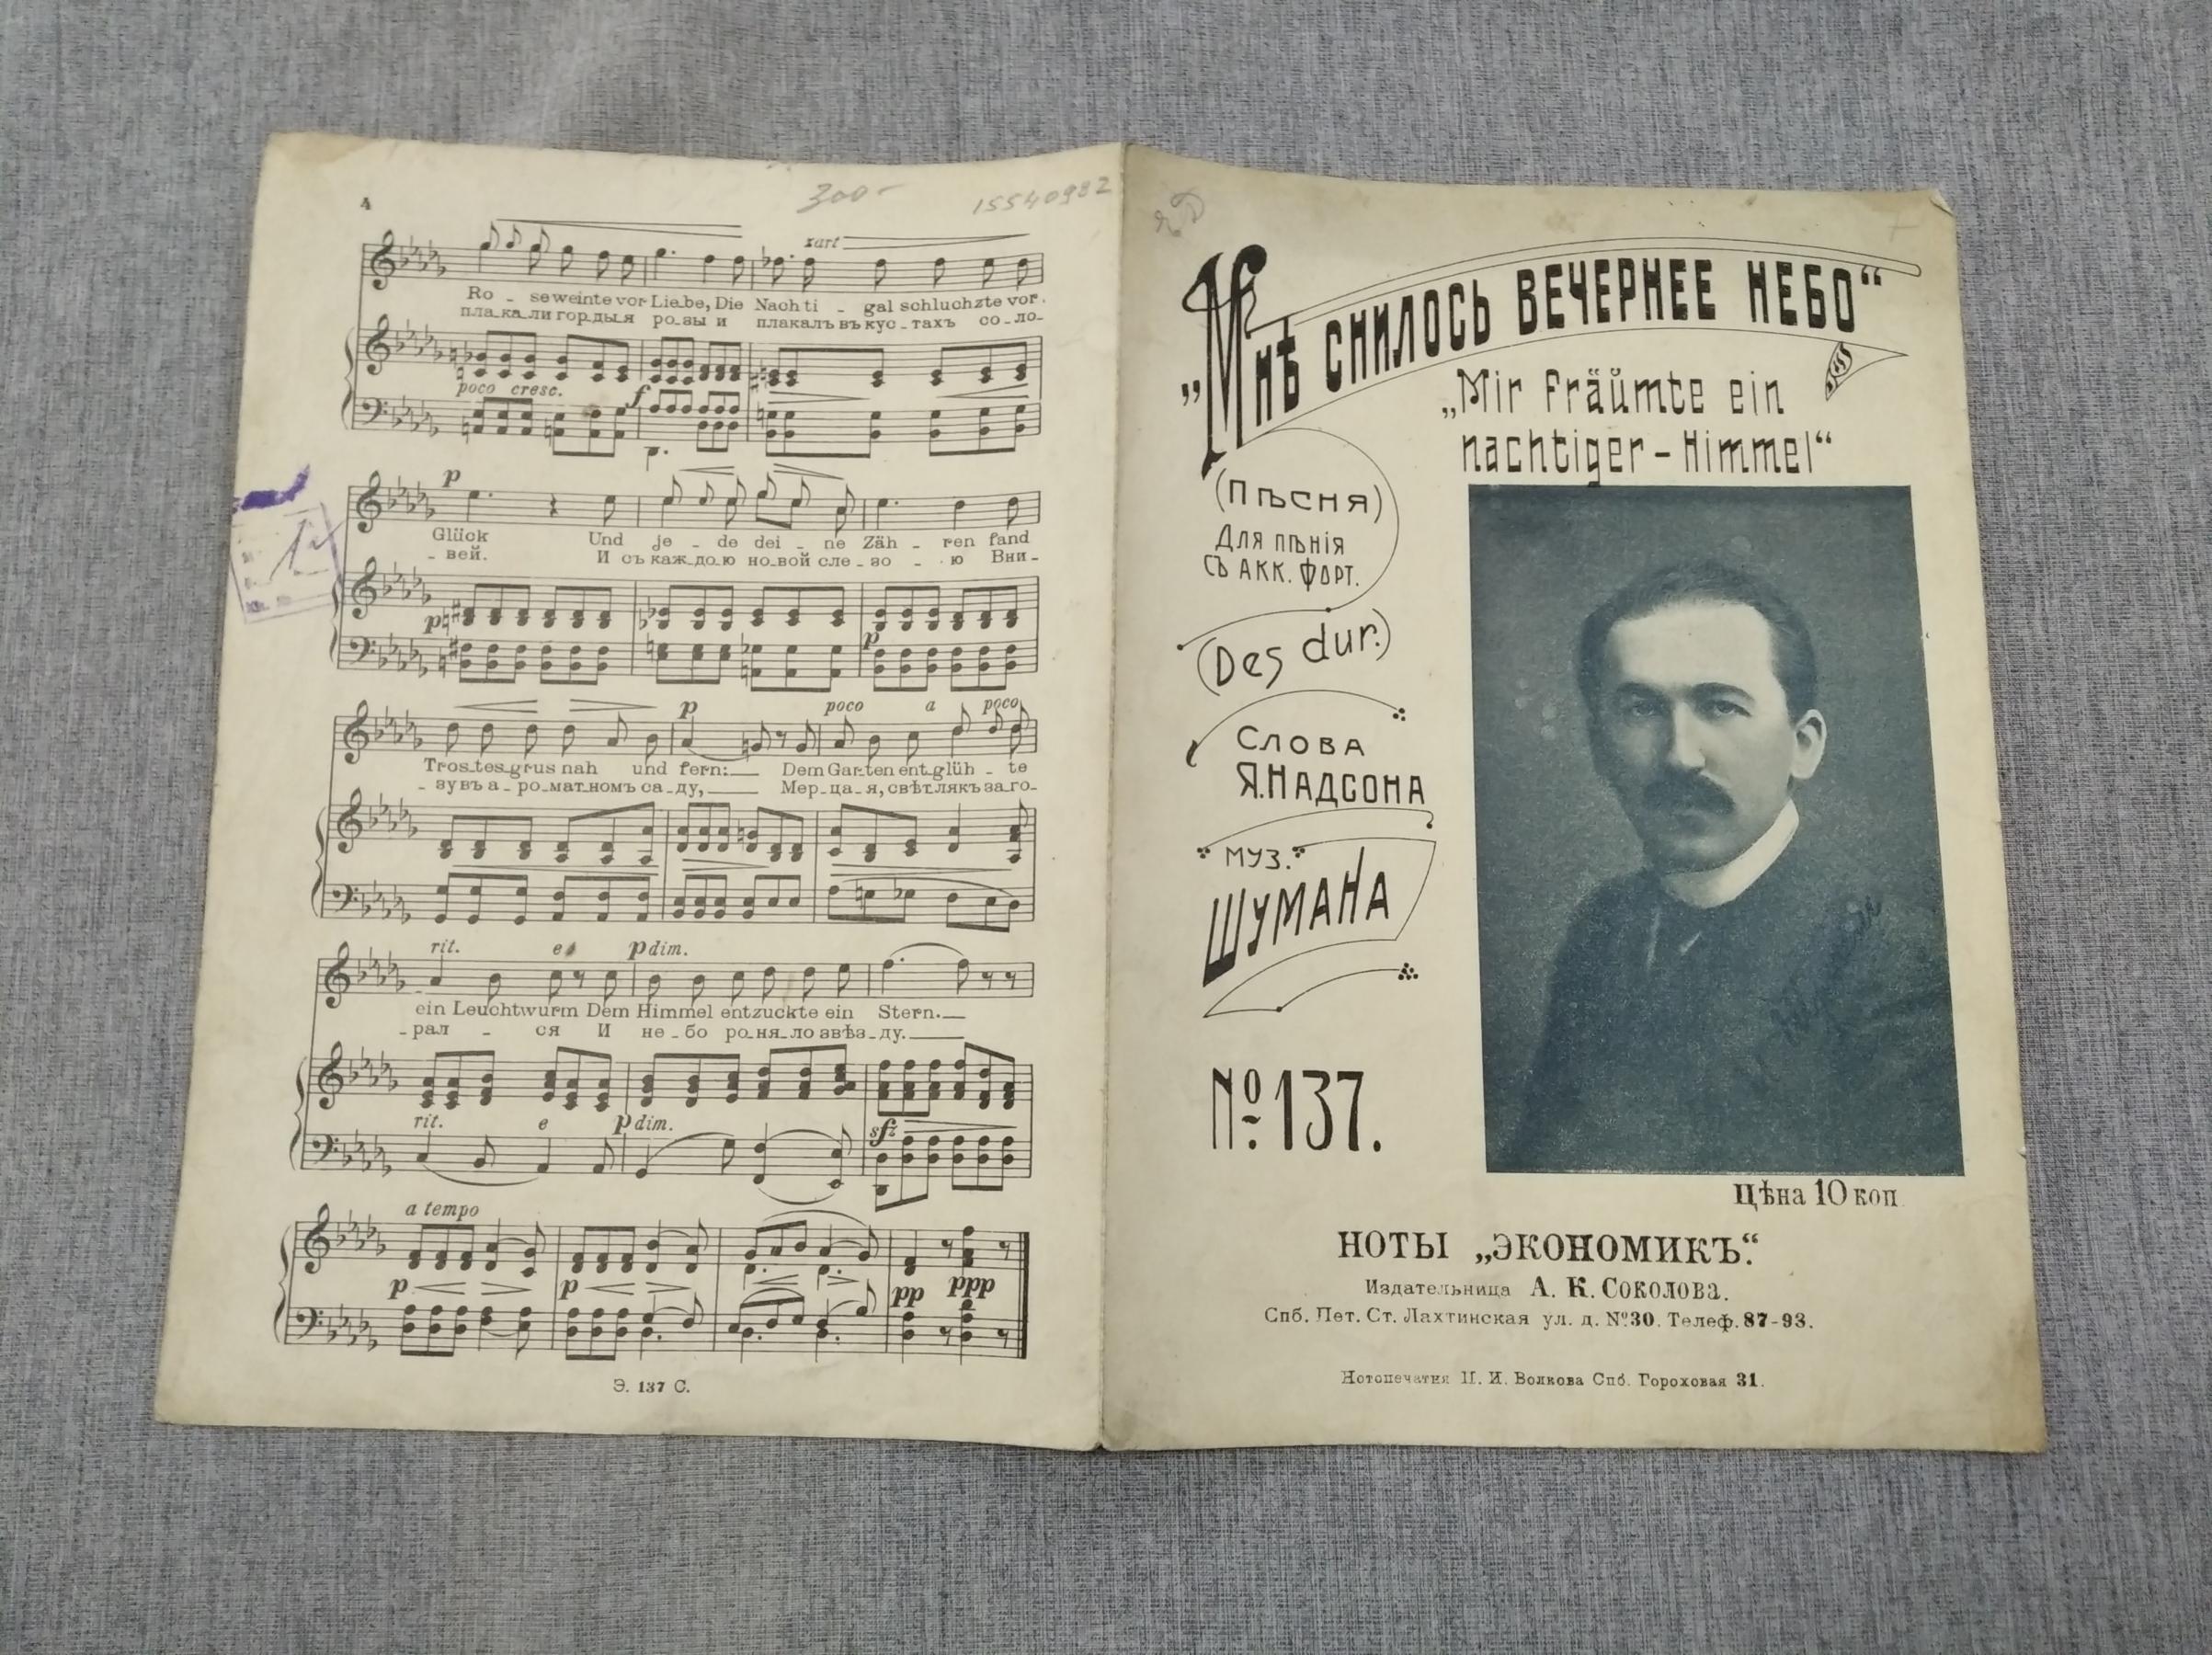 4
300-
15540992
zart
Ro - se weinte vor Liebe, Die Nachti - gal schluchzte vor
пла-ка-ли гор-ды-я ро-зы и плакалъ въ кус-тахъ со-ло-
poco cresc.
f
p
Glück Und je - de dei - ne Zäh - ren fand
- вей. И съ каж-до-ю но-вой сле-зо - ю Вни-
p
p
p poco a poco
Tros-tes-grus nah und fern: Dem Gar-ten ent-glüh - te
- зувъ а-ро-мат-номъ са-ду, Мер-ца-я, свѣт-лякъ за-го-
rit. e p dim.
ein Leuchtwurm Dem Himmel entzuckte ein Stern.
- рал - ся И не-бо ро-ня-ло звѣз-ду.
rit. e p dim. sfz
a tempo
p p pp ppp
Э. 137 С.
„Мнѣ снилось вечернее небо“
„Mir fräumte ein
nachtiger-Himmel“
(Пѣсня)
Для пѣнія
съ акк. форт.
(Des dur.)
Слова
Я. Надсона
муз.
Шумана
№137.
Цѣна 10 коп
НОТЫ „ЭКОНОМИКЪ“.
Издательница А. К. Соколова.
Спб. Пет. Ст. Лахтинская ул. д. №30. Телеф. 87-93.
Нотопечатня П. И. Волкова Спб. Гороховая 31.